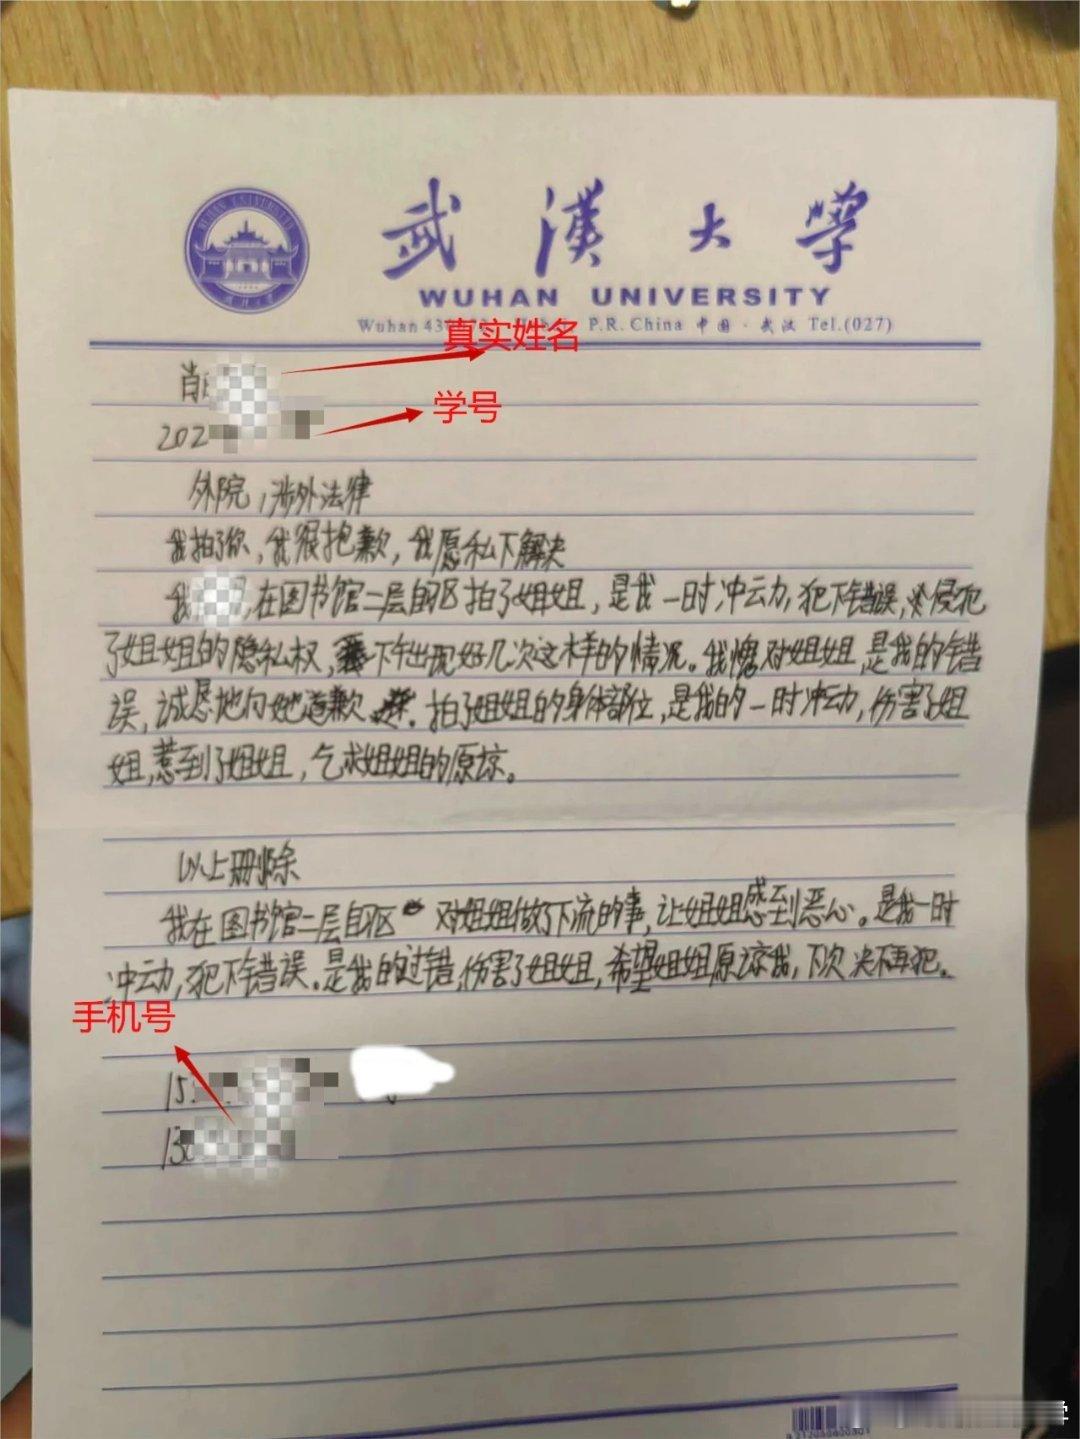 武漢大學
WUHAN UNIVERSITY
Wuhan P.R. China 中国·武汉 Tel.(027)
真实姓名
肖
学号
202
外院,涉外法律
我拍了你,我很抱歉,我愿私下解决
我,在图书馆二层自区拍了姐姐,是我一时冲动,犯下错误,侵犯
了姐姐的隐私权,下午出现好几次这样的情况。我愧对姐姐,是我的错
误,诚恳地向她道歉。拍了姐姐的身体部位,是我的一时冲动,伤害了姐
姐,惹到了姐姐,乞求姐姐的原谅。
以上删除
我在图书馆二层自区对姐姐做了下流的事,让姐姐感到恶心。是我一时
冲动,犯下错误。是我的过错,伤害了姐姐,希望姐姐原谅我,下次决不再犯。
手机号
15
13